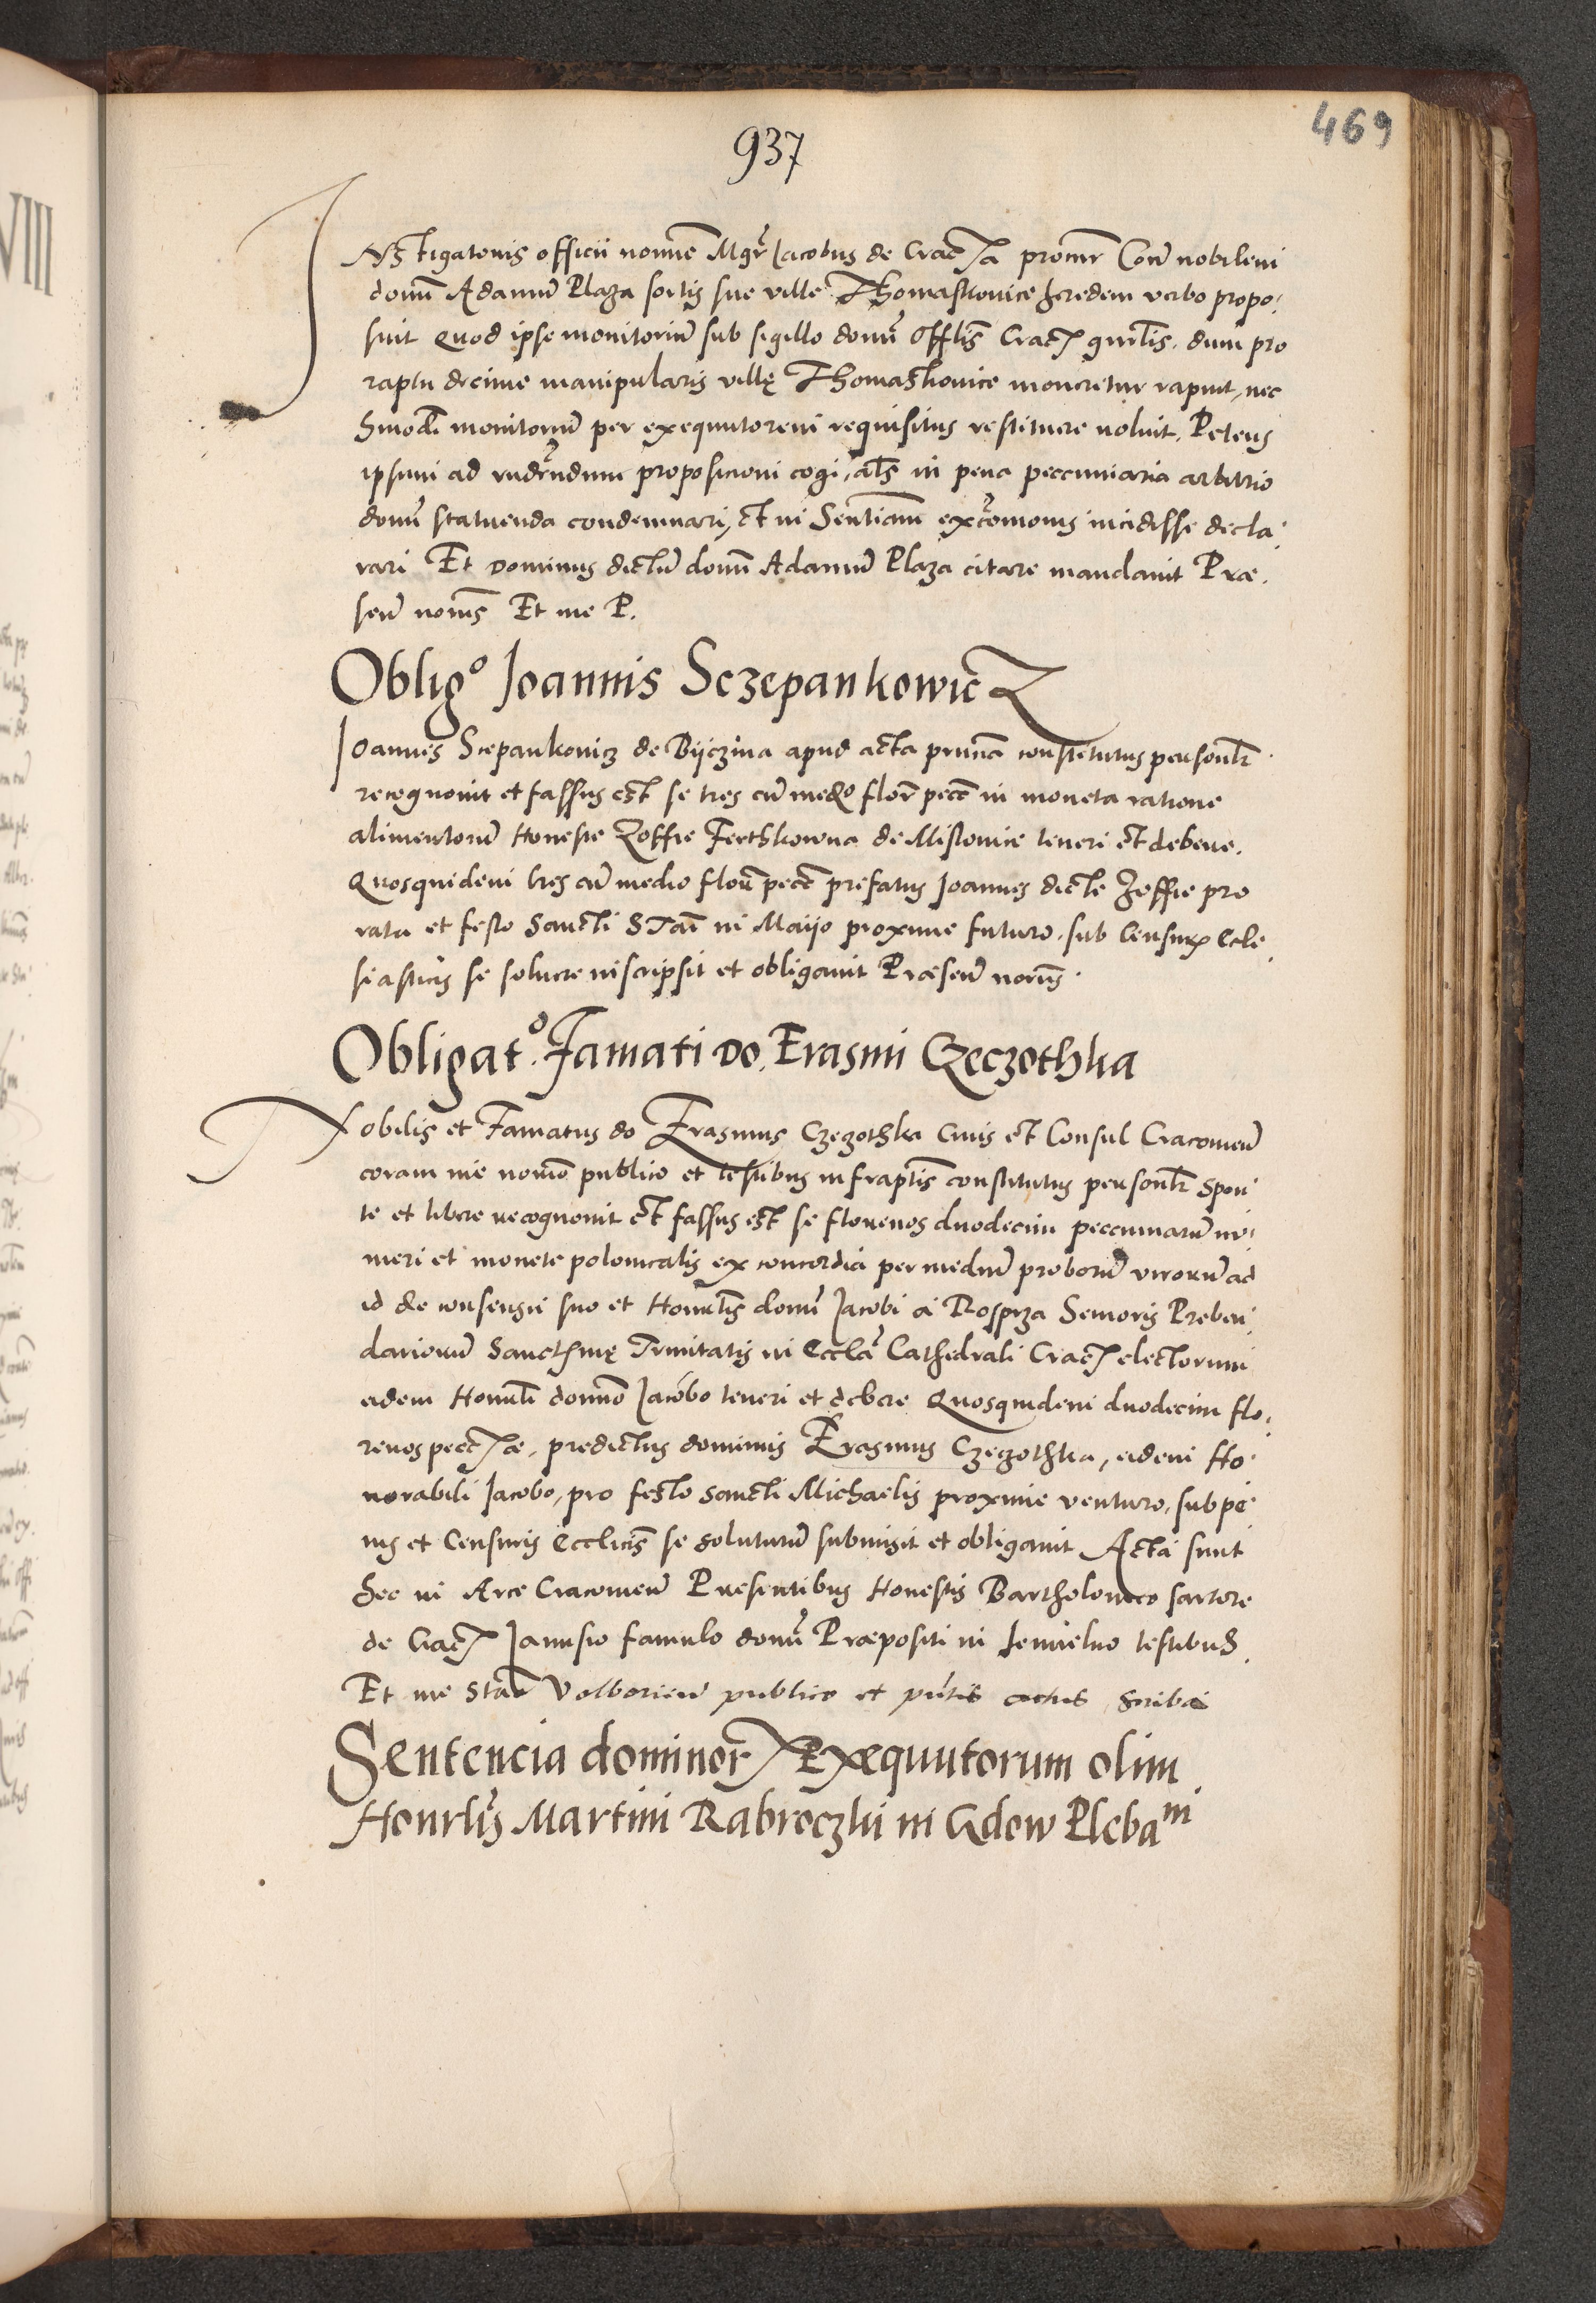 937
469
INstigatoris officii nomine Mgr̃ Jacobus de Crac̃a procur̃ Con̄ nobilem
domū Adamū Plaza sortis sue ville Thomaskovice heredem verbo propo,
suit Quod ipse monitoriū sub sigillo domī Offlis Crac̃ gnrlis, dum pro
raptu decime manipularis villę Thomaskovice moneretur rapuit, nec
hmoďi monitoriū per exequutorem requisitus restituere noluit, Petens
ipsum ad rndēndum propositioni cogi, als in pena peccuniaria arbitrio
domī statuenda condemnari, et in Sentiam̄ excōmonis incidisse decla,
rari Et Dominus dictū domū Adamū Plaza citare mandavit Præ,
sen̄ noriis Et me P.
Oblig° Joannis Sczepankowicz
Joannes Scepankovicz de Bijczina apud acta pr̄ncia constitutus personlr̃
recognovit et fassus est se tres cū medio flor̃ pecc̄ in moneta ratione
alimentorū Honeste Zoffie Ferthkowna de Mislovice teneri et debere,
Quosquidem tres cū medio florn̄ pecc̄ prefatus Joannes dicte Zoffie pro
rata et festo Sancti STai in Maijo proxime futuro, sub Censuris Eccle,
siasticis se solvere inscripsit et obligavit Præsen̄ noriis.
Obligat.° Famati Do. Erasmi Czeczothka
Nobilis et Famatus do Erasmus Czeczothka Civis et Consul Cracovien̄
coram me norīo publico et testibus infraptis constitutus personlr̃ spon
te et libere recognovit et fassus est se florenos duodecim peccuniarū nu,
meri et monete polonicalis ex concordia per mediū proborū virorū ad
id de consensu suo et Honrlis domī Jacobi a Rosprza Senioris Preben,
dariorū Sancthmę Trinitatis in Ecclã Cathedrali Crac̃ electorum
eidem Honrli domīno Jacobo teneri et debere Quosquidem duodecim flo,
renos pecc̃æ, predictus dominus Erasmus Czeczothka, eidem Ho,
norabili Jacobo, pro festo Sancti Michaelis proxime venturo, sub pe
nis et Censuris Ecclicis se soluturū submisit et obligavit Acta sunt
hec in Arce Cracovien̄ Presentibus Honestis Bartholomeo sartore
de Crac̃ Janusio famulo domī Præpositi in Jemielno testibus.
Et me Stan̄ Volborien̄ publico et pn̄tis actus scriba
Sentencia dominor̃ Exequutorum olim
Honrlis Martini Rabroczki in Gdow Plebani